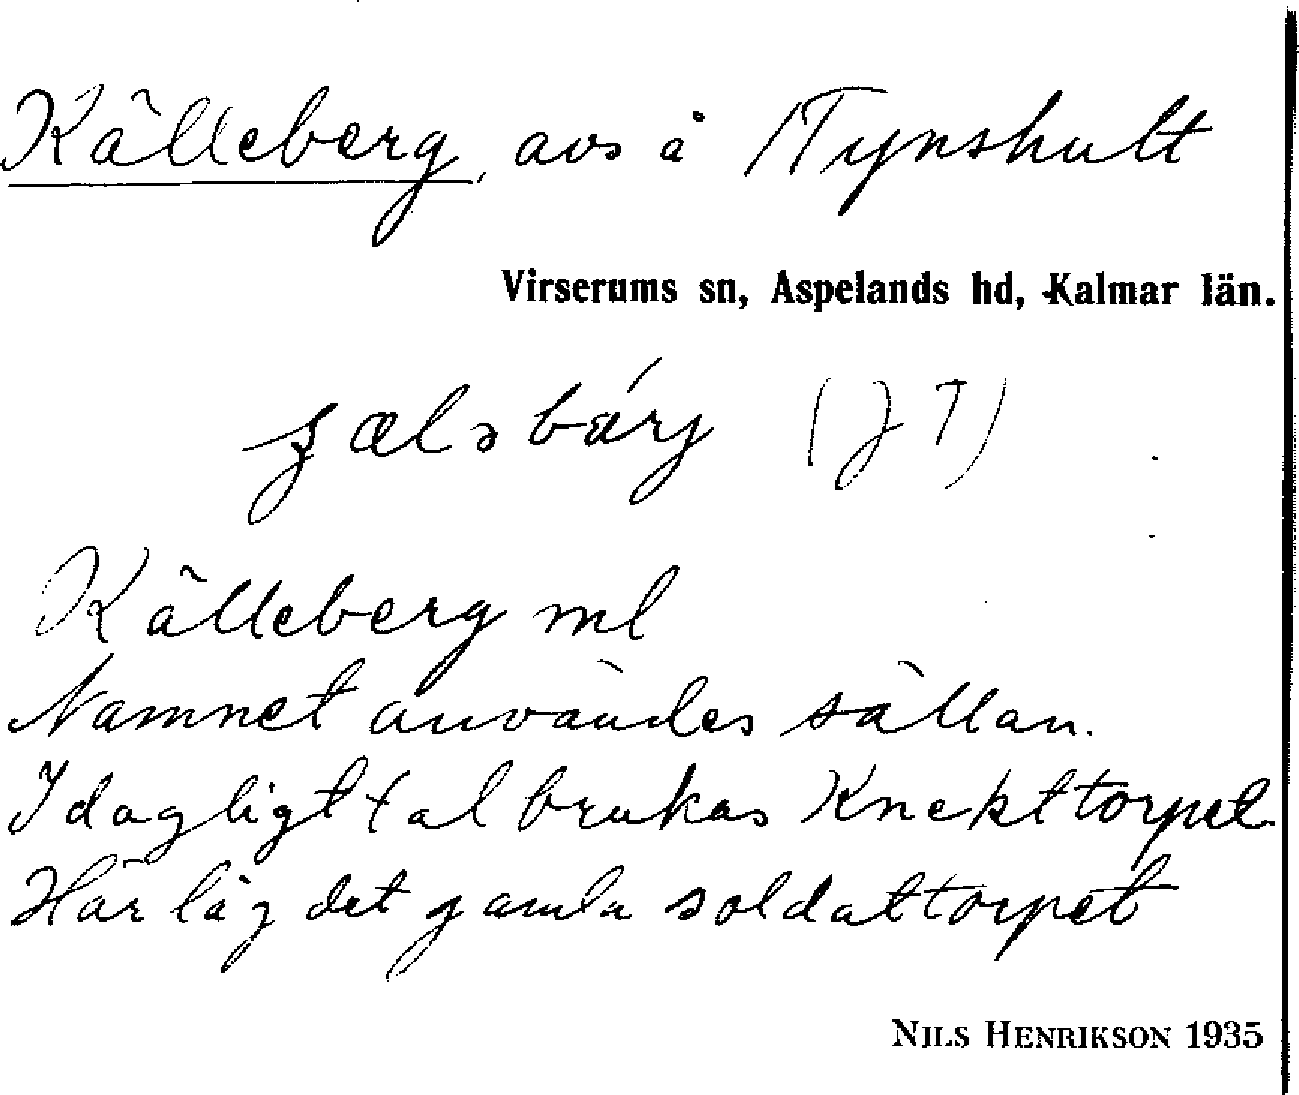 Källeberg, avs å /Tynshult
Virserums sn, Aspelands hd, Kalmar län.
(JT)
Källeberg ml
Namnet användes sällan.
I dagligt tal brukas Knekttorpet.
Här låg det gamla soldattorpet
NILS HENRIKSON 1935